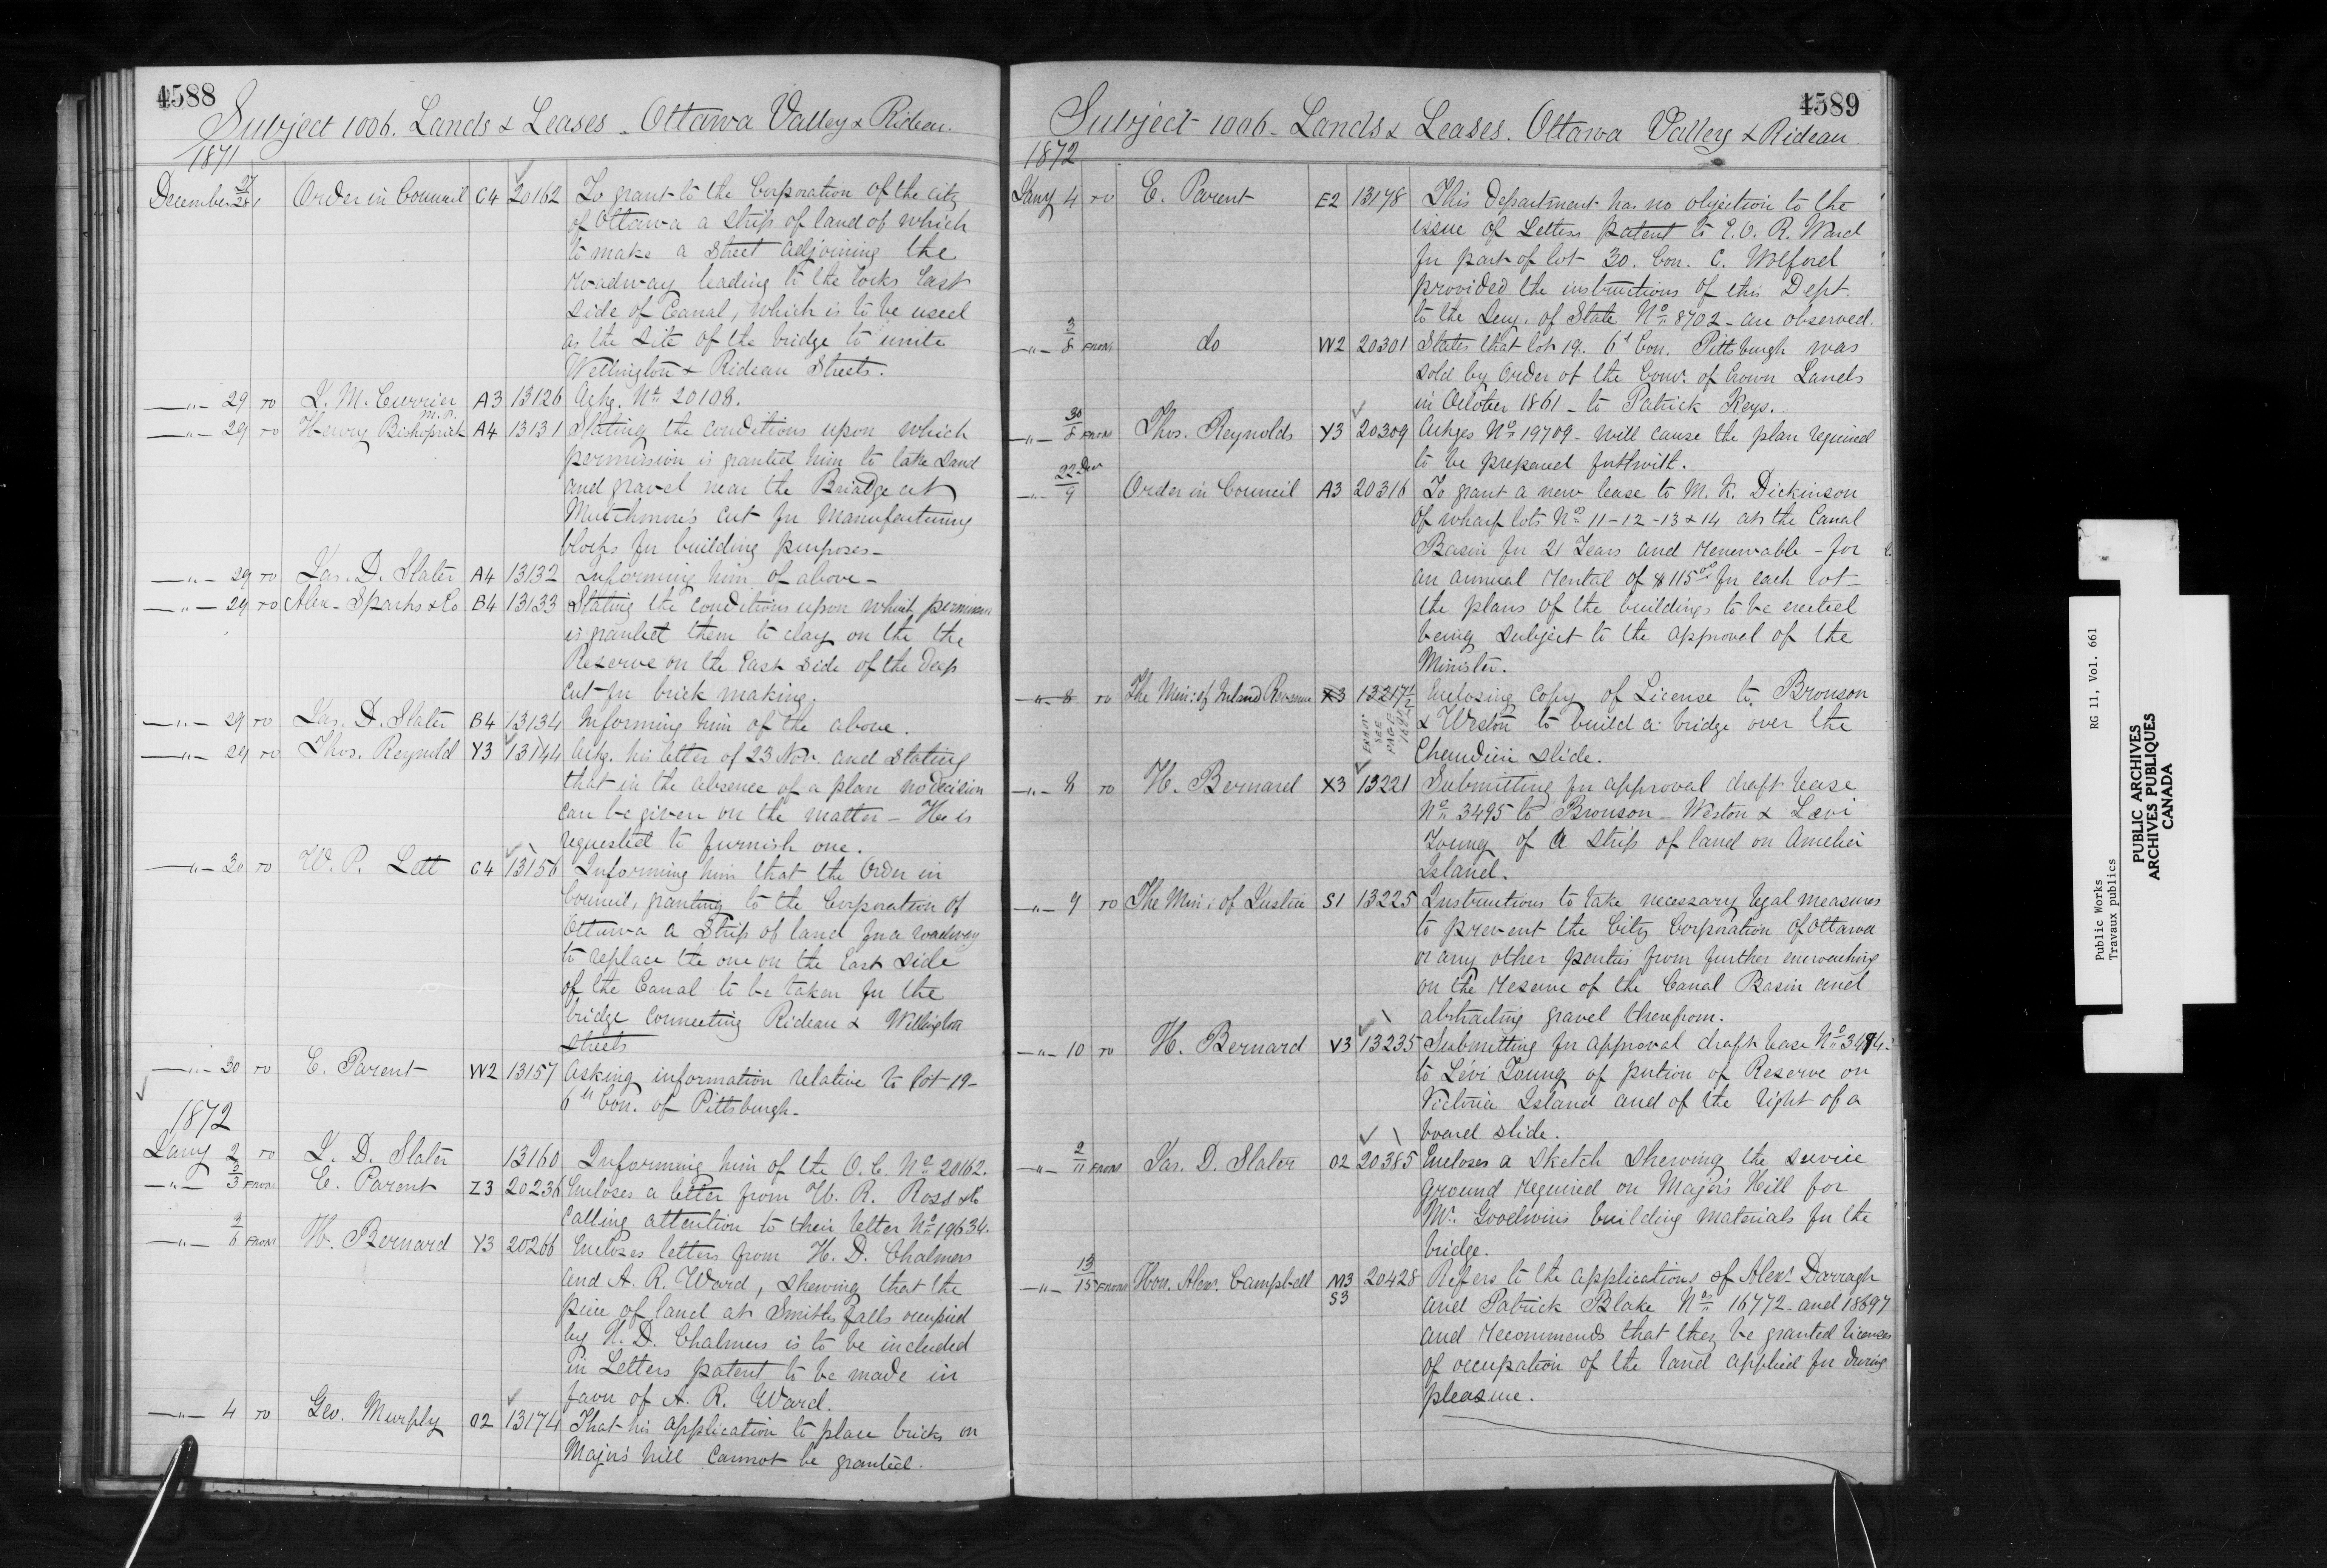 4588
Subject 1006. Lands & Leases - Ottawa Valley & Rideau.
1871
December 27/28 Order in Council C4 20162 To grant to the Corporation of the city
of Ottawa a strip of land of which
to make a street adjoining the
roadway leading to the locks East
side of Canal, which is to be used
as the site of the bridge to unite
Wellington & Rideau Streets.
—"— 29 TO J. M. Currier M.P. A3 13126 Ackg. No 20108.
—"— 29 TO Henry Bishoprick A4 13131 Stating the conditions upon which
permission is granted him to take sand
and gravel near the Briadge at
Mutchmore's Cut for manufacturing
blocks for building purposes -
—"— 29 TO Jas. D. Slater A4 13132 Informing him of above -
—"— 29 TO Alex. Sparks & Co B4 13133 Stating the conditions upon which permission
is granted them to clay on the the
Reserve on the East side of the deep
cut for brick making.
—"— 29 TO Jas. D. Slater B4 13134 Informing him of the above.
—"— 29 TO Thos. Reynold Y3 13144 Ackg. his letter of 23 Nov. and stating
that in the absence of a plan no decision
can be given on the matter - He is
requested to furnish one.
—"— 30 TO W. P. Lett C4 13156 Informing him that the Order in
Council, granting to the Corporation of
Ottawa a strip of land for a roadway
to replace the one on the East side
of the Canal to be taken for the
bridge connecting Rideau & Wellington
streets
—"— 30 TO E. Parent W2 13157 Asking information relative to lot 19 -
6th Con. of Pittsburgh -
1872
Jany 2 TO J. D. Slater 13160 Informing him of the O.C. No 20162.
—"— 3/3 FROM E. Parent Z3 20236 Encloses a letter from W. R. Ross & Co
calling attention to their letter No 19634.
—"— 3/6 FROM H. Bernard Y3 20266 Encloses letters from H. D. Chalmers
and A. R. Ward, shewing that the
piece of land at Smiths falls occupied
by H. D. Chalmers is to be included
in Letters patent to be made in
favor of A. R. Ward.
—"— 4 TO Geo. Murphy O2 13174 That his application to place bricks on
Major's hill cannot be granted.
4589
Subject 1006 - Lands & Leases. Ottawa Valley & Rideau.
1872
Jany 4 TO E. Parent E2 13178 This Department has no objection to the
issue of Letters patent to E. O. R. Ward
for part of lot 30. Con. C. Wolford
provided the instructions of this Dept.
to the Secy. of State No 8702 - are observed.
—"— 3/8 FROM do W2 20301 States that lot 19. 6th Con. Pittsburgh was
sold by Order of the Comr. of Crown Lands
in October 1861 - to Patrick Keys.
—"— 30/8 FROM Thos. Reynolds Y3 20309 Ackges No 19709 - will cause the plan required
to be prepared forthwith.
—"— 22 Decr/9 Order in Council A3 20316 To grant a new lease to M. K. Dickinson
of wharf lots No 11-12-13 & 14 at the Canal
Basin for 21 Years and renewable - for
an annual rental of $115.00 for each lot -
the plans of the buildings to be erected
being subject to the approval of the
Minister.
—"— 8 TO The Min: of Inland Revenue X3 13217½ Enclosing copy of License to Bronson
& Weston to build a bridge over the
Chaudiere slide.
—"— 8 TO H. Bernard X3 13221 Submitting for approval draft lease
No 3495 to Bronson - Weston & Levi
Young of a strip of land on Amelia
Island.
—"— 9 TO The Min: of Justice S1 13225 Instructions to take necessary legal measures
to prevent the City Corporation of Ottawa
or any other parties from further encroaching
on the reserve of the Canal Basin and
abstracting gravel therefrom.
—"— 10 TO H. Bernard V3 13235 Submitting for approval draft lease No 3494
to Levi Young of portion of Reserve on
Victoria Island and of the right of a
board slide.
—"— 2/11 FROM Jas. D. Slater O2 20385 Encloses a sketch shewing the service
ground required on Major's Hill for
Mr. Goodwin's building materials for the
bridge.
—"— 13/15 FROM Hon. Alexr. Campbell M3 S3 20428 Refers to the applications of Alexr. Darragh
and Patrick Blake Nos 16772 - and 18697
and recommends that they be granted licenses
of occupation of the land applied for during
pleasure.
Public Works RG 11, Vol. 661
Travaux publics
PUBLIC ARCHIVES
ARCHIVES PUBLIQUES
CANADA